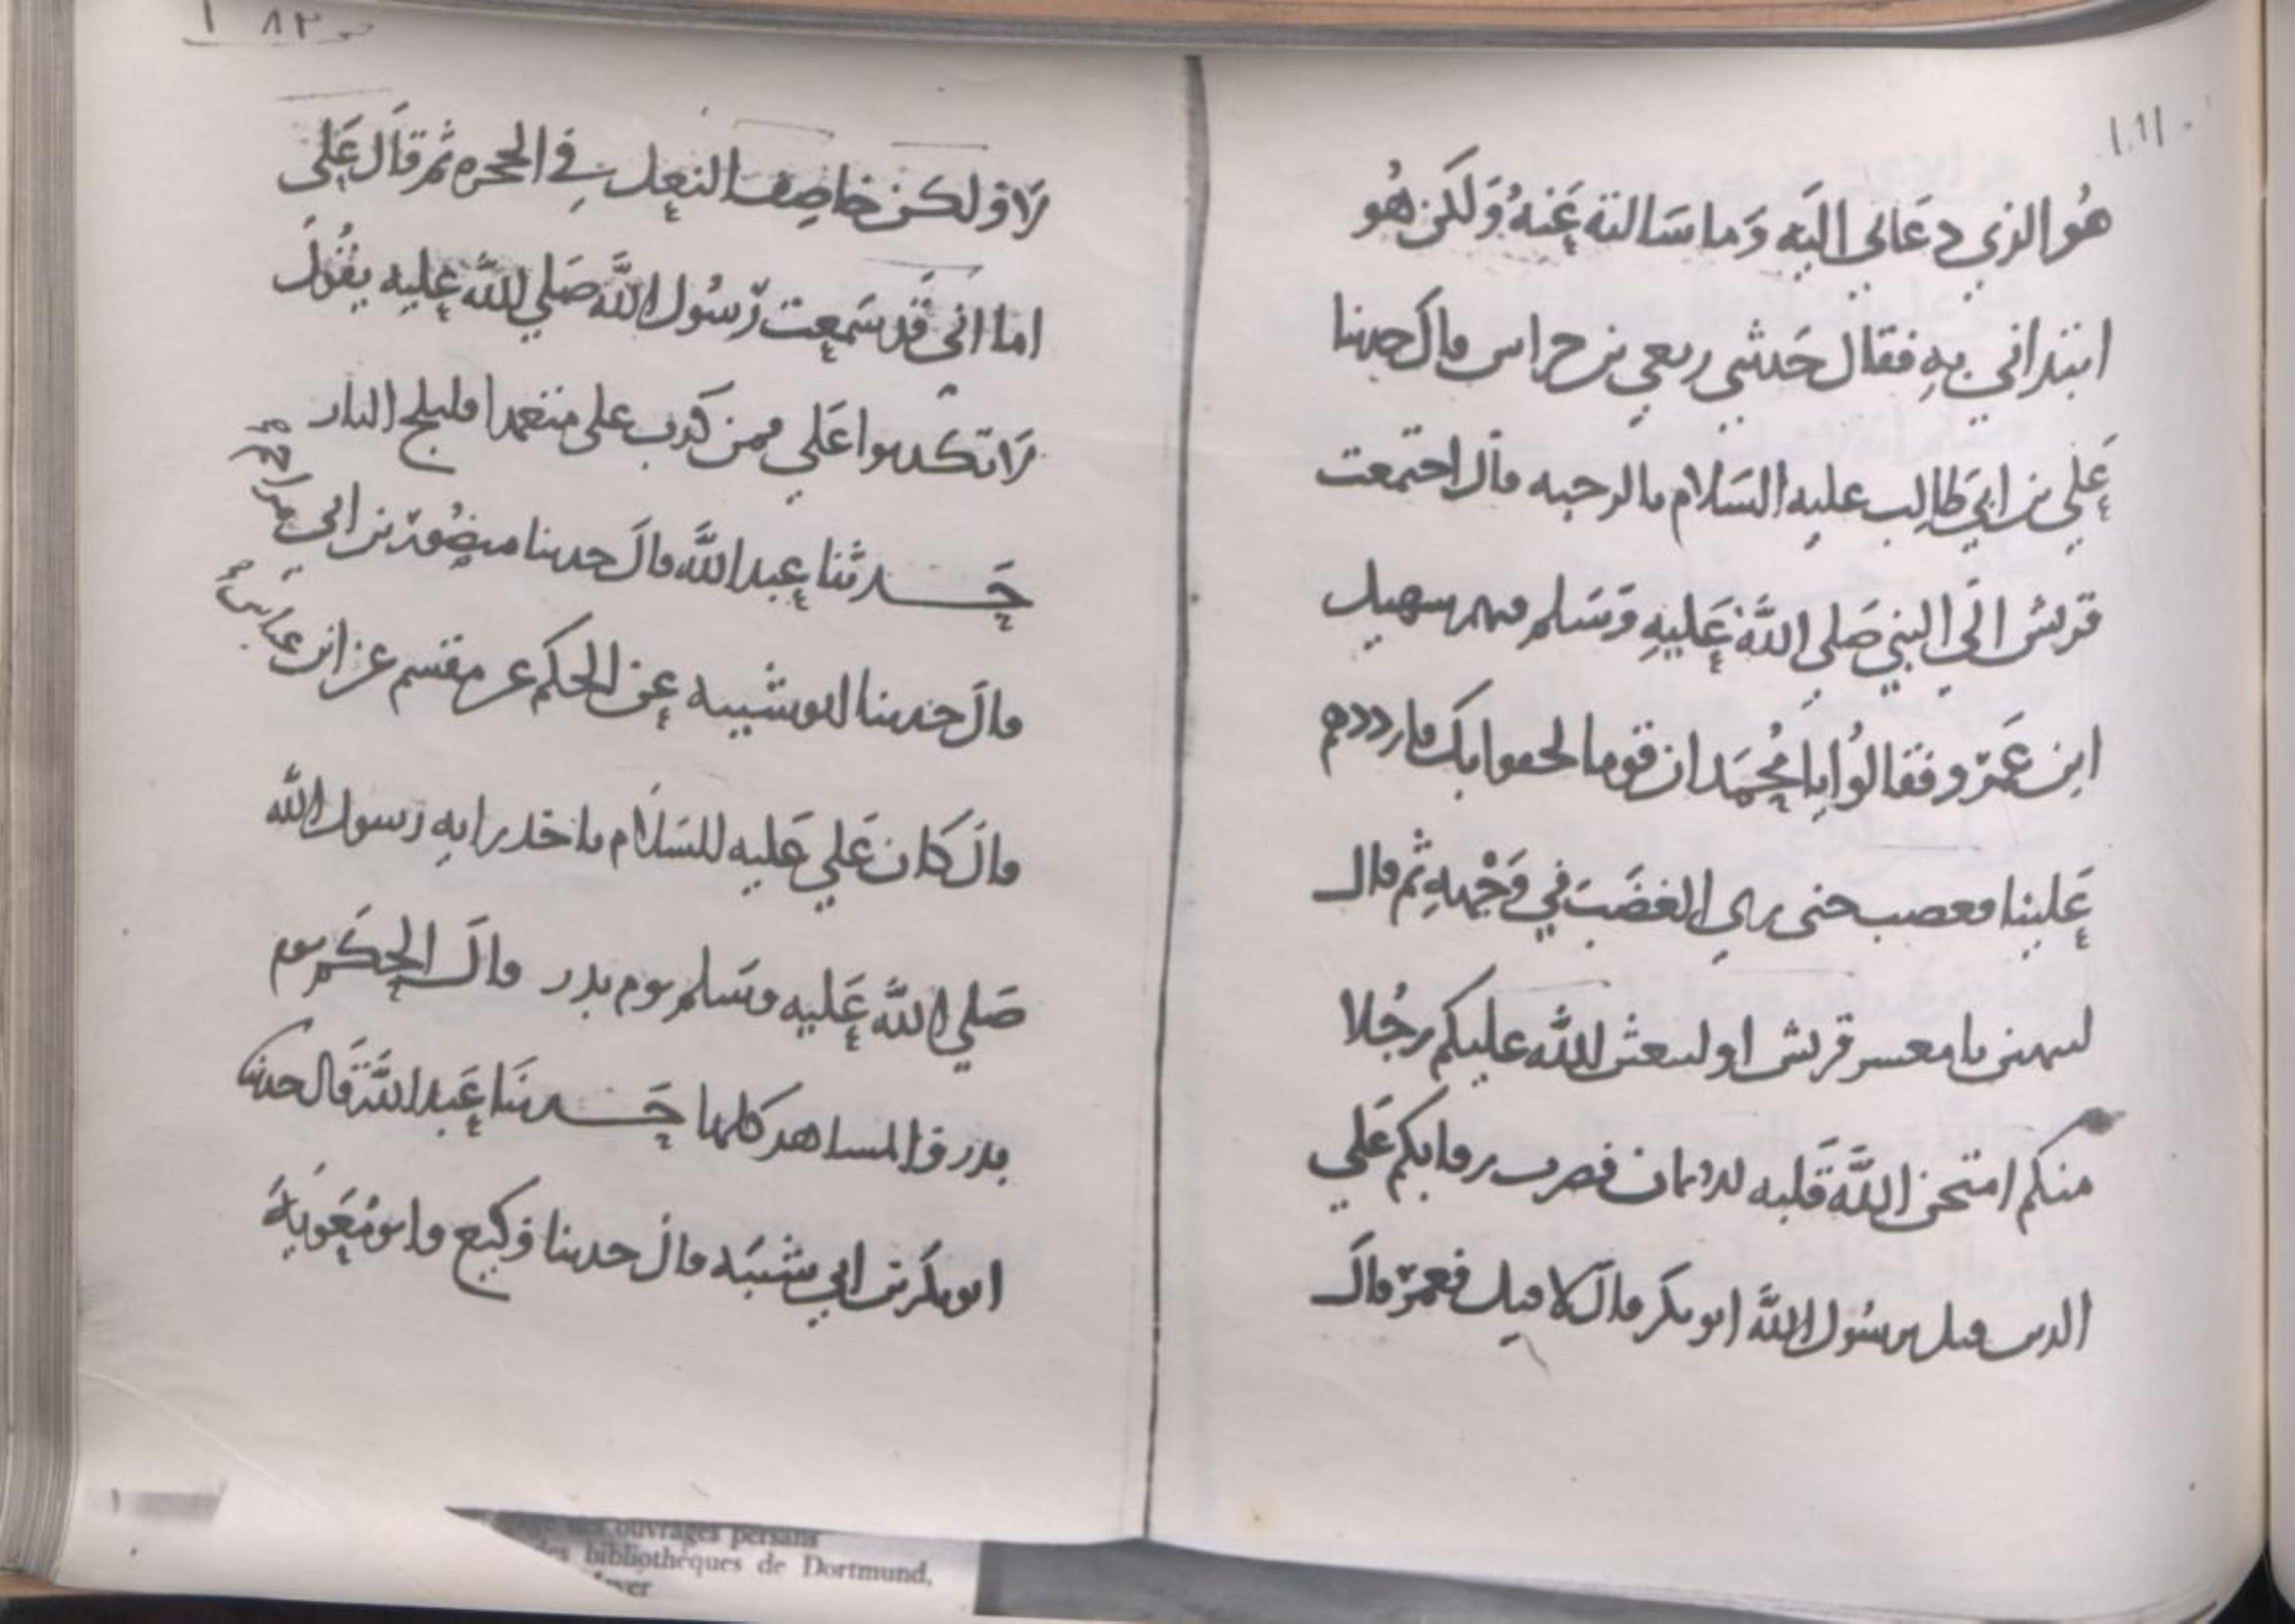 هُو الذي دعَاني اليَه وَما سَالته عَنهُ وَلكن هُو
ابتداني بهِ فقال حَدثني ربعي بن حراس قال حدثنا
عَلي بن ابي طالِب عليه السَلام بالرحبه قال اجتمعت
قريش الَى النبي صَلى اللهُ عَليهِ وَسَلم فيهم سهيل
ابن عَمرو فقالُوا يا مُحمَد ان قوما لحقوا بك فارددهم
عَلينا فغضب حتى رُيي الغضَب في وَجْههِ ثم قال
لتنتهن يا معشر قريش او ليبعثن الله عليكم رجُلا
منكم امتحن اللَّه قَلبه للايمان فضرب رقابكم عَلي
الدين قيل يرسُول اللَّه ابو بكر قال لا قيل فعمر قالَ
٨٢ ا
لَا ولكن خاصِف النعل في الحجره ثم قالَ عَلي
اما انى قَد سَمعت رَسُول اللَّه صَلي الله عليه يقُولُ
لَا تكذبوا عَلي فمن كذب علي متعمدا فليلج النار
حَدثنا عبد اللَّه قالَ حدثنا منصُور بن ابي مزاحم
قالَ حَدثنا ابو شيبه عن الحكم عن مقسم عن ابن عباس
قالَ كان عَلي عَليه السَلام ياخذ رايه رَسول الله
صَلي اللَّه عَليه وسَلم يوم بدر قالَ الحكَم يوم
بدر والمشاهد كلها حَدثنَا عَبد اللَّه قَال حدثنا
ابو بكر بن ابي شيبَه قالَ حدثنا وَكيع وابو مُعَويَةَ
ouvrages persans
des bibliothèques de Dortmund,